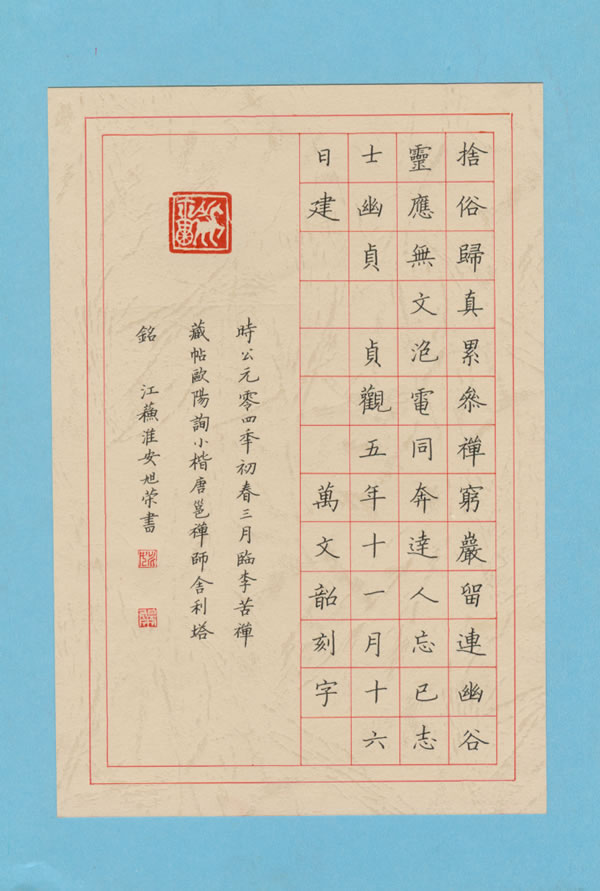 捨俗歸真累叅禪窮巖留連幽谷
靈應無文泡電同奔達人忘已志
士幽貞 貞觀五年十一月十六
日建 萬文韶刻字
時公元零四秊初春三月臨李苦禪
藏帖歐陽詢小楷唐邕禪師舍利塔
銘 江蘓淮安旭荣書